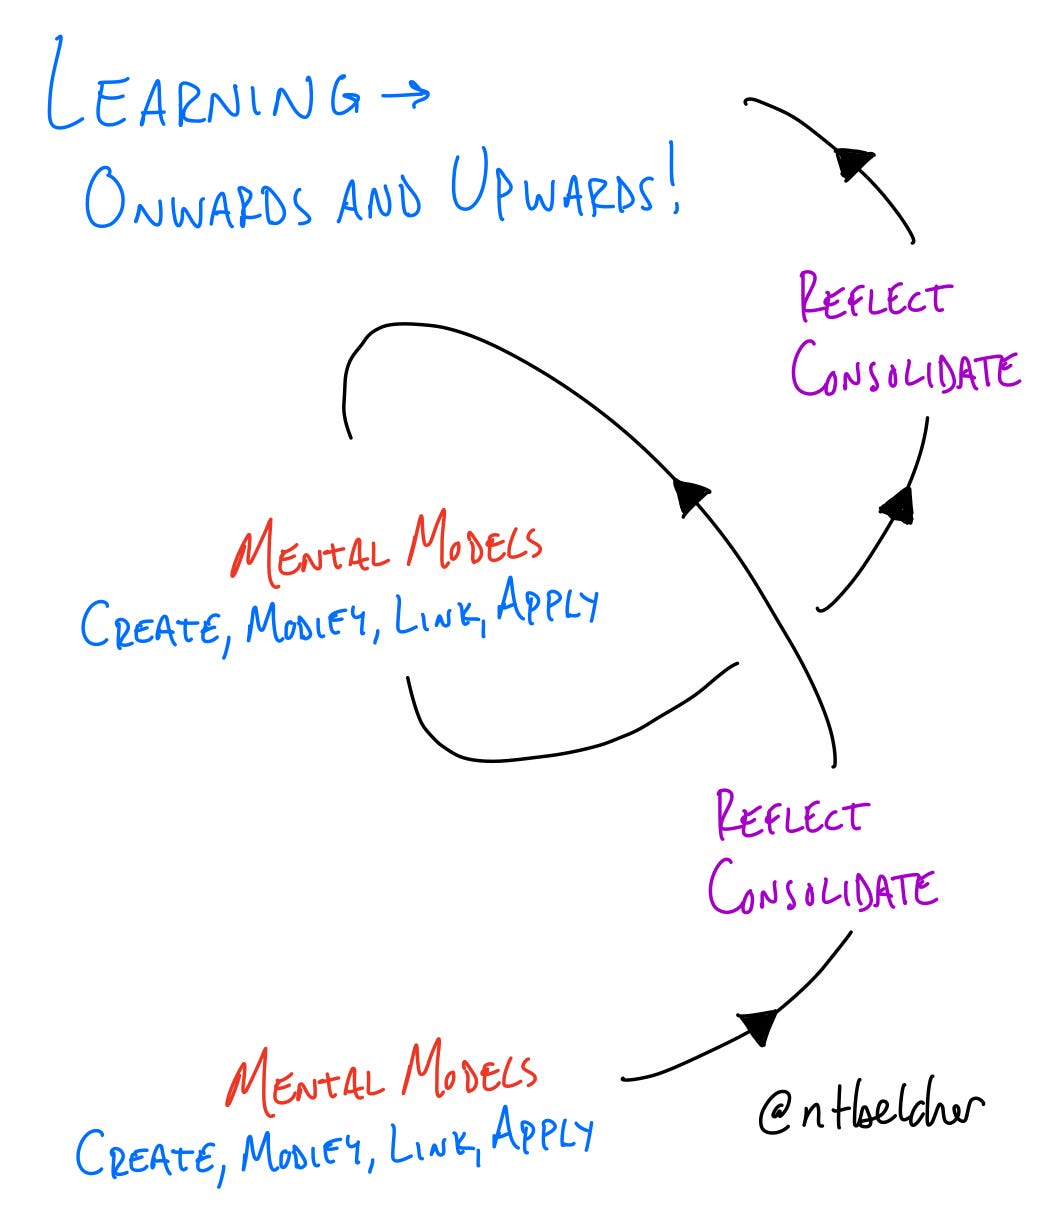 LEARNING →
ONWARDS AND UPWARDS!
REFLECT
CONSOLIDATE
MENTAL MODELS
CREATE, MODIFY, LINK, APPLY
REFLECT
CONSOLIDATE
MENTAL MODELS
CREATE, MODIFY, LINK, APPLY
@ntbelcher